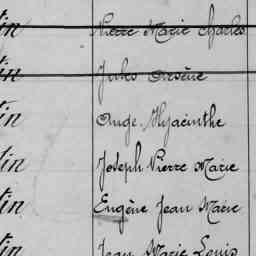 tin Pierre Marie Charles
tin Jules Arsène
tin Ange Hyacinthe
tin Joseph Pierre Marie
tin Eugène Jean Marie
tin Jean Marie Louis